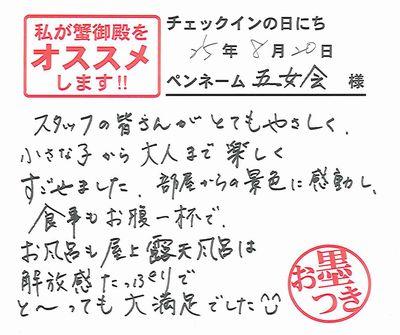 私が蟹御殿を
オススメ
します!!
チェックインの日にち
25年8月20日
ペンネーム 五女会 様
スタッフの皆さんがとてもやさしく、
小さな子から大人まで楽しく
すごせました。部屋からの景色に感動し、
食事もお腹一杯で、
お風呂も屋上露天風呂は
解放感たっぷりで
と〜っても大満足でした
お墨つき